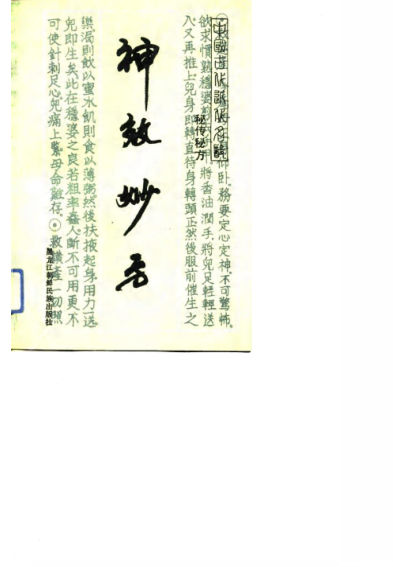 仰臥.務要定心定神.不可驚怖.
中國古代
欲求慣熟穩婆 將香油潤手.將兒足輕輕送
秘传秘方
入.又再推上.兒身即轉.直待身轉頭正.然後服前催生之
神效妙方
藥.渴則飲以蜜水.飢則食以薄粥.然後扶掖起身.用力一送.
兒即生矣.此在穩婆之良.若粗率蠢人.斷不可用.更不
可使針刺足心.兒痛上 母命難存.◎救橫產.一切照
黑龙江朝鲜民族出版社